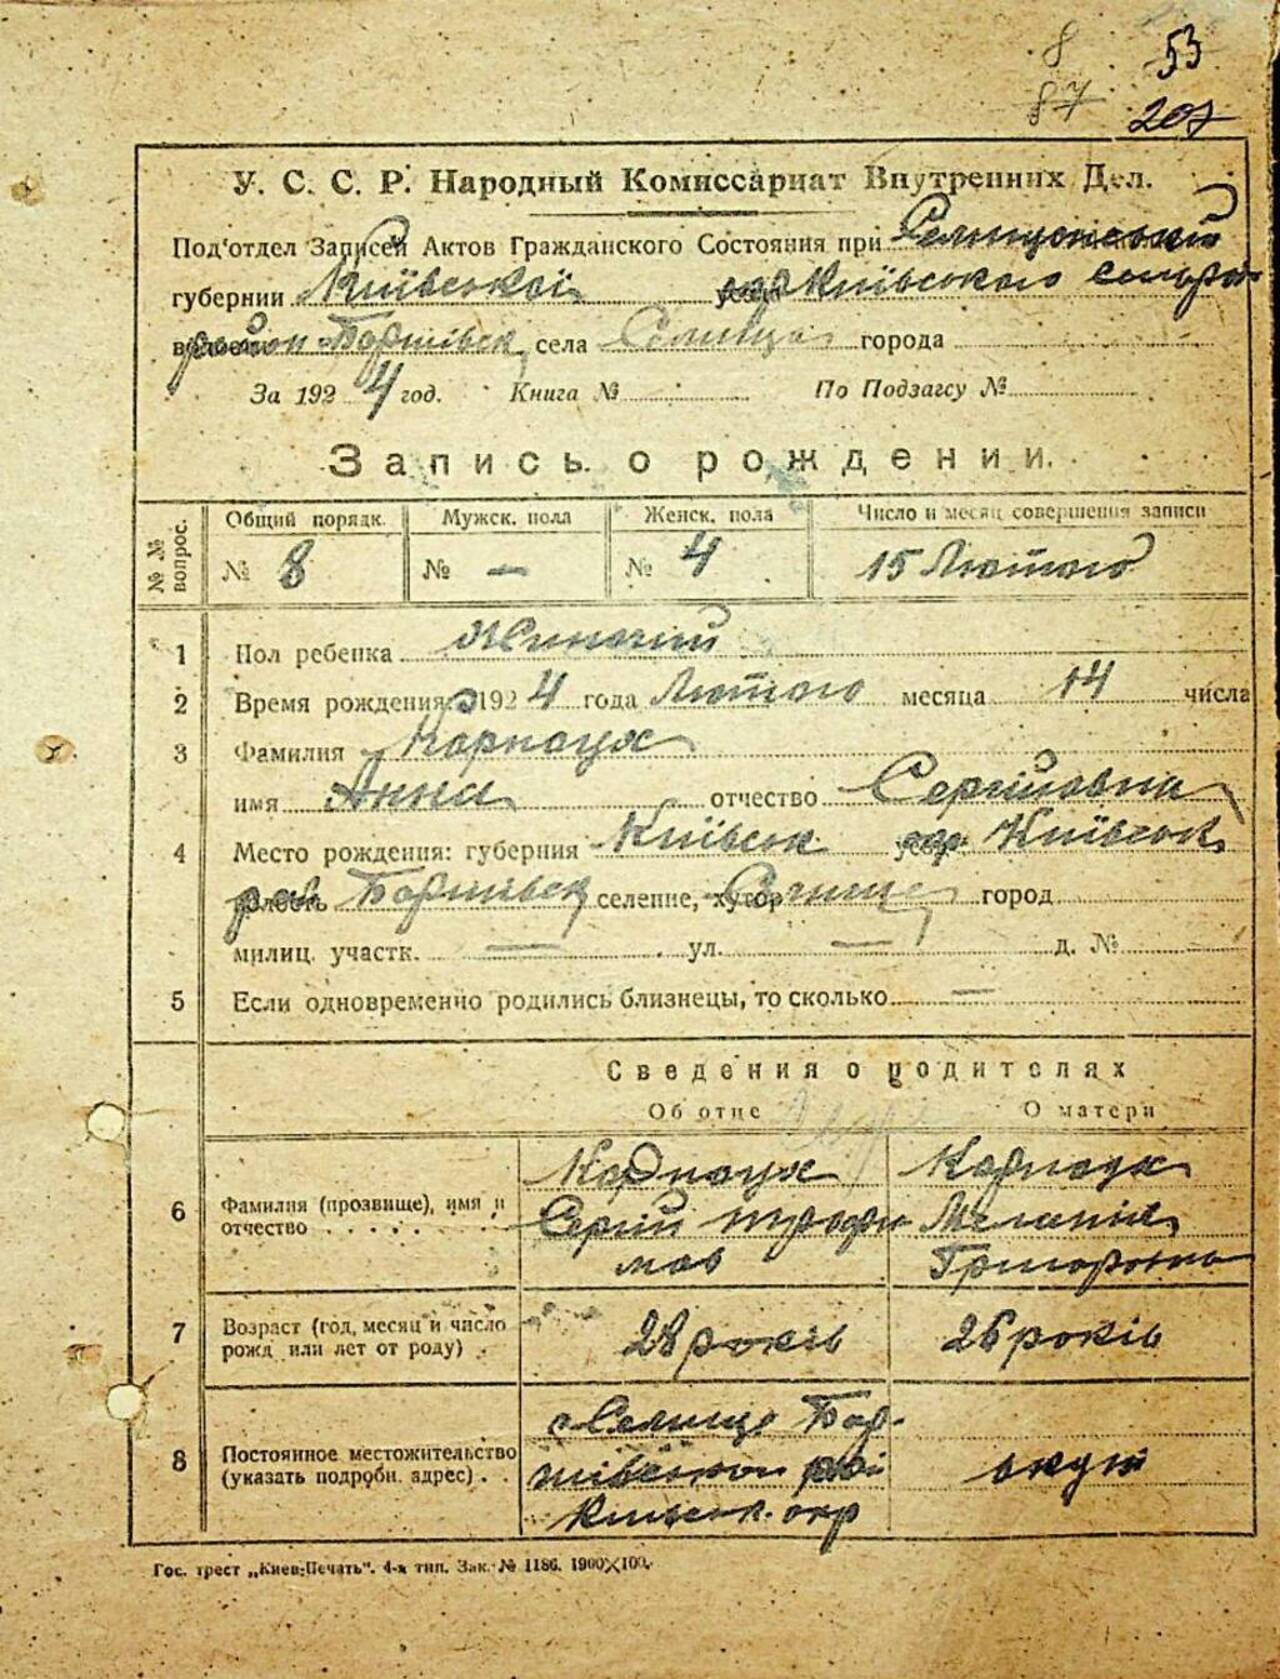 8 53
87 207
У. С. С. Р. Народный Комиссариат Внутренних Дел.
Под'отдел Записей Актов Гражданского Состояния при
губернии Київської Київського
Баришівськ села Селище города
За 1924 год. Книга № По Подзагсу №
Запись о рождении.
№ № вопрос. Общий порядк. Мужск. пола Женск. пола Число и месяц совершения записи
№ 8 № — № 4 15 Лютого
1 Пол ребенка Жиночий
2 Время рождения: 1924 года Лютого месяца 14 числа
3 Фамилия Карнаух
имя Анна отчество Сергіївна
4 Место рождения: губерния Київськ окр Київськ
рай Баришівськ селение, хутор Селище город
милиц. участк. — ул. — д. №
5 Если одновременно родились близнецы, то сколько —
Сведения о родителях
Об отце О матери
6 Фамилия (прозвище), имя и отчество
Карнаух
Сергій Трофи
мов
Карнаух
Меланія
Григоровна
7 Возраст (год, месяц и число рожд или лет от роду)
28 років 26 років
8 Постоянное местожительство (указать подробн. адрес)
с Селище Бар-
Київськ. окр
Гос. трест „Киев-Печать". 4-я тип. Зак. № 1186. 1900×100.